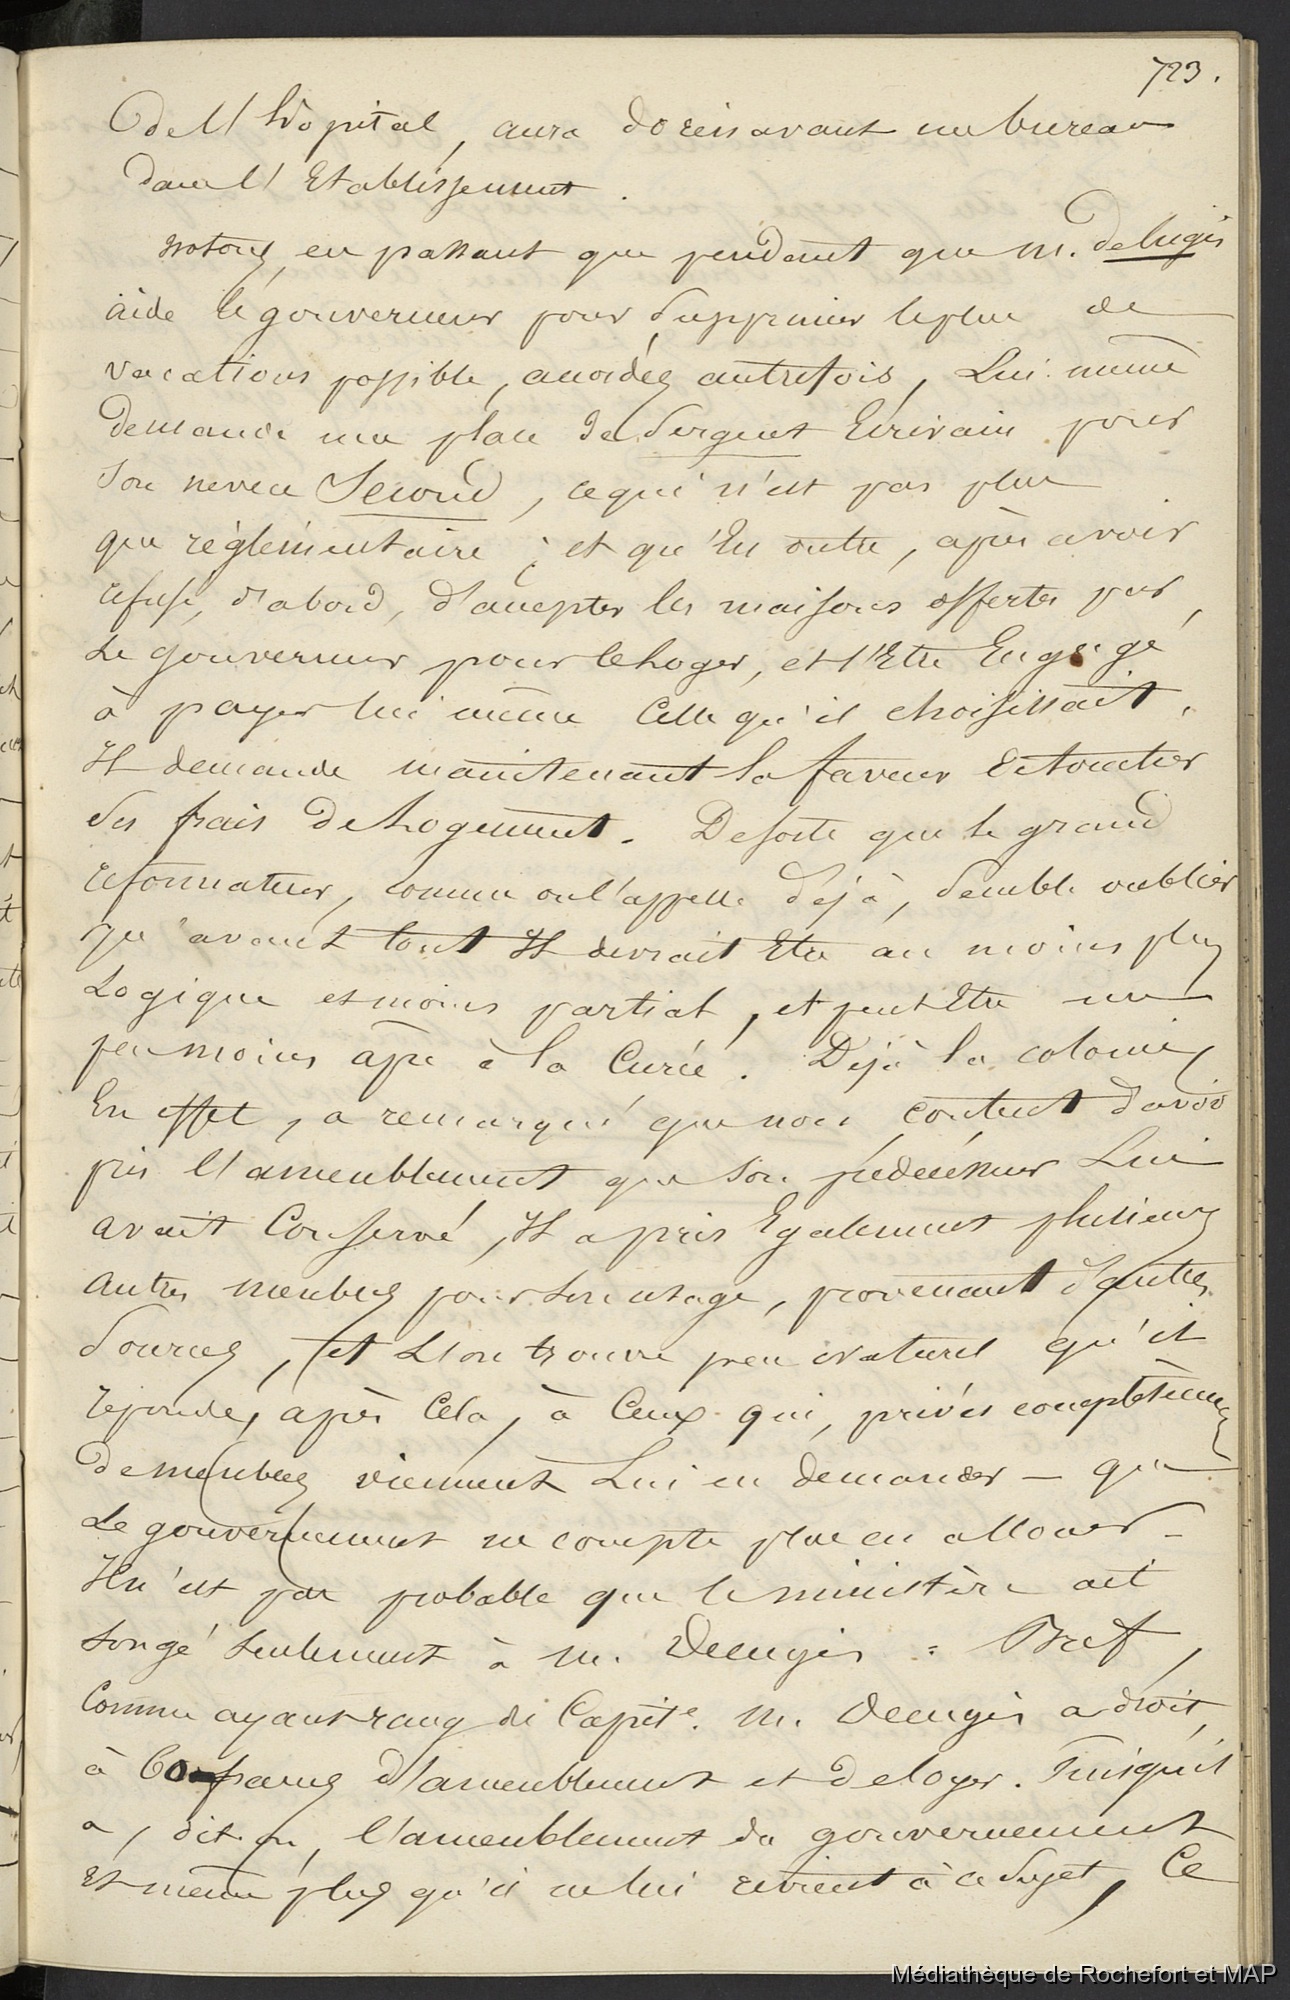 723.
de l'hopital, aura dorenavant un bureau
dans l'Etablissement.
Notons, en passant que pendant que M. Delugis
aide le gouverneur pour supprimer le plus de
vacations possible, accordées autrefois, Lui même
demande une place de Sergent Ecrivain pour
son neveu Second, ce qui n'est pas plus
que réglémentaire ; et qu'En outre, après avoir
refusé, d'abord, d'accepter les maisons offertes par
Le gouverneur pour le Loger, et s'Etre Engagé
à payer lui même Celle qu'il choisissait,
Il demande maintenant la faveur de toucher
des frais de Logement. De sorte que le grand
reformateur, comme on l'appelle déjà, semble oublier
qu'avant tout Il devrait Etre au moins plus
Logique et moins partial, et peut Etre un
peu moins âpre à la Curée. Déjà la colonie,
En effet, a remarqué que non content d'avoir
pris l'ameublement que son prédécesseur Lui
avait Conservé, Il a pris Egalement plusieurs
autres meubles pour son usage, provenant d'autres
sources, et L'on trouve peu naturel qu'il
reponde, après Cela, à Ceux qui, privés complètement
de meubles viennent Lui en demander — que
Le gouvernement ne compte plus en allouer —
Il n'est pas probable que le ministère ait
songé seulement à M. Delugis : Bref,
Comme ayant rang de Capite. M. Delugis a droit
à 60 francs d'ameublement et de loyer. Puisqu'il
a, dit-on, l'ameublement du gouvernement
Et même plus qu'il ne lui revient à ce sujet, Ce
Médiathèque de Rochefort et MAP